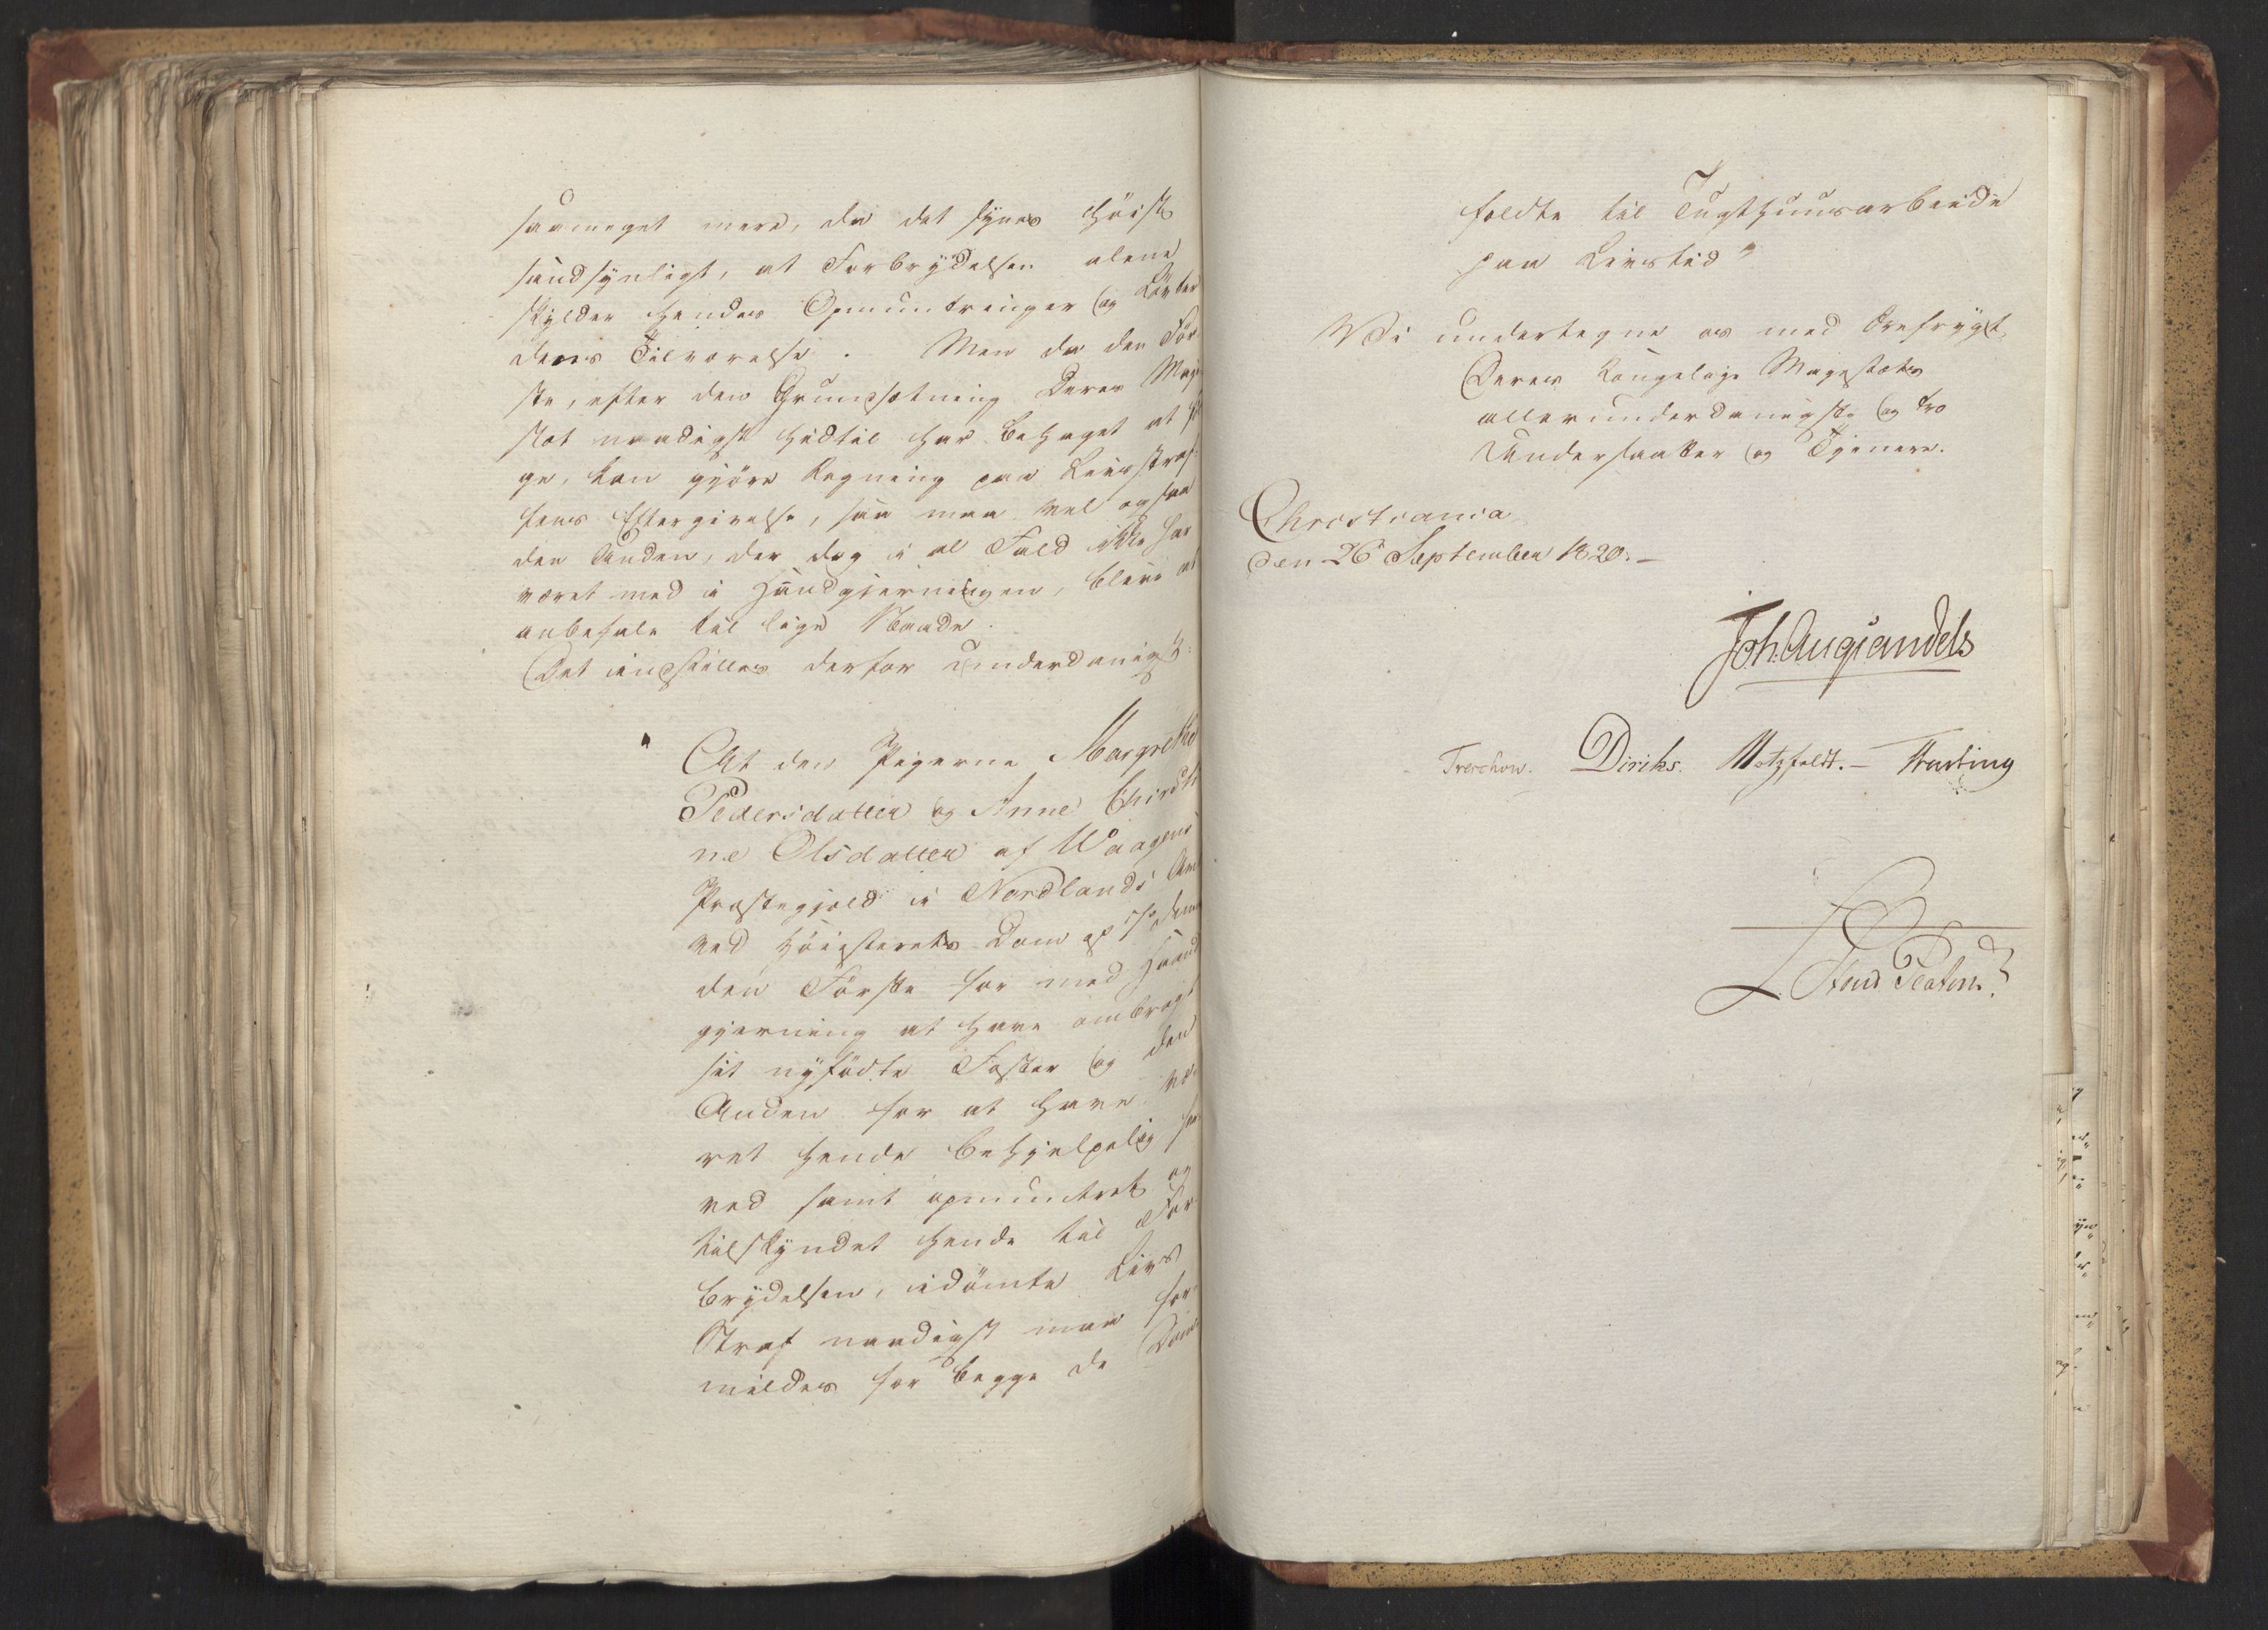 saameget mere, da det synes høist
sandsynligt, at Forbrydelsen alene
skylder hendes Opmuntringer og Løvter
deres Tilværelse. Men da den Før-
ste, efter den Grundsætning Deres Maje-
stæt naadigst hidtil har behaget at føl-
ge, kan gjøre Regning paa Livsstraf-
fens Eftergivelse, saa maa vel ogsaa
den Anden, der dog i al Fald ikke har
været med i Haandgjerningen, blive at
anbefale til lige Naade.
Det indstilles derfor underdanigst:
"At den Pigerne Margrethe
Pedersdatter og Anne Chirsti-
ne Olsdatter af Waagens
Præstegjeld i Nordlands Amt
ved Høiesterets Dom af
den Første for med Haand-
gjerning at have ombragt
sit nyfødte Foster og den
Anden for at have væ-
ret hende behjelpelig her-
ved samt opmuntret og
tilskyndet hende til For-
brydelsen, idømte Livs-
Straf naadigst maa for-
mildes for begge de Dom-
fældte til Tugthuusarbeide
paa Livstid"
Vi undertegne os med Ærefrygt
Deres Kongelige Majestæts
allerunderdanigste og tro
Undersaatter og Tjenere.
Christiania
den 26 September 1820.-
Joh. Aug: Sandels
Treschow. Diriks. Motzfeldt.- Hasting
v Platen.